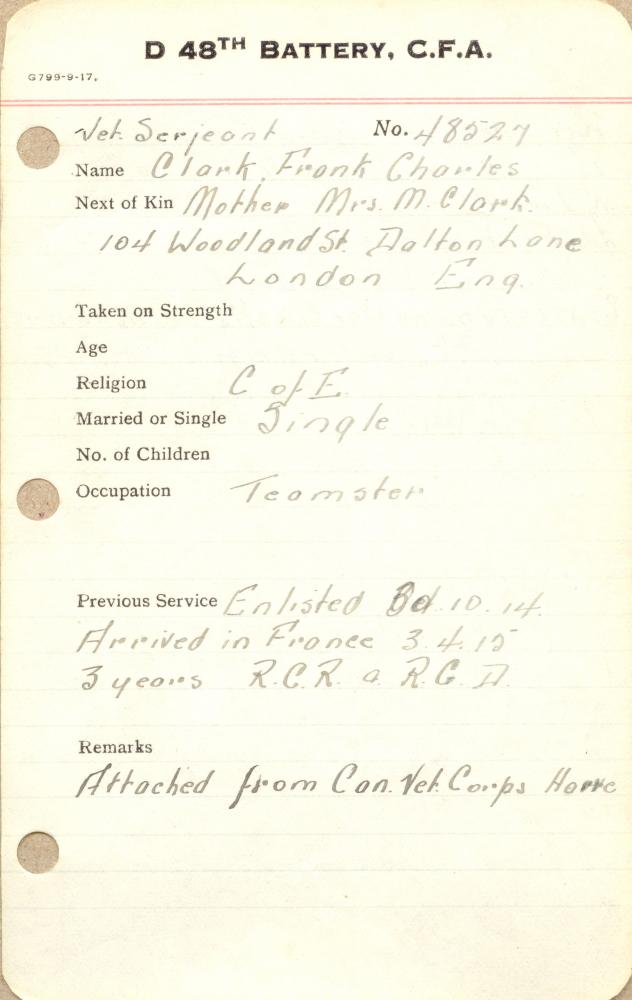 D 48TH BATTERY, C.F.A.
G799-9-17.
Vet. Serjeant No. 48527
Name Clark, Frank Charles
Next of Kin Mother Mrs. M. Clark.
104 Woodland St. Dalton Lane
London Eng.
Taken on Strength
Age
Religion C of E.
Married or Single Single
No. of Children
Occupation Teamster
Previous Service Enlisted 10.14.
Arrived in France 3.4.15
3 years R.C.R. a R.G.
Remarks
Attached from Can. Vet. Corps Havre